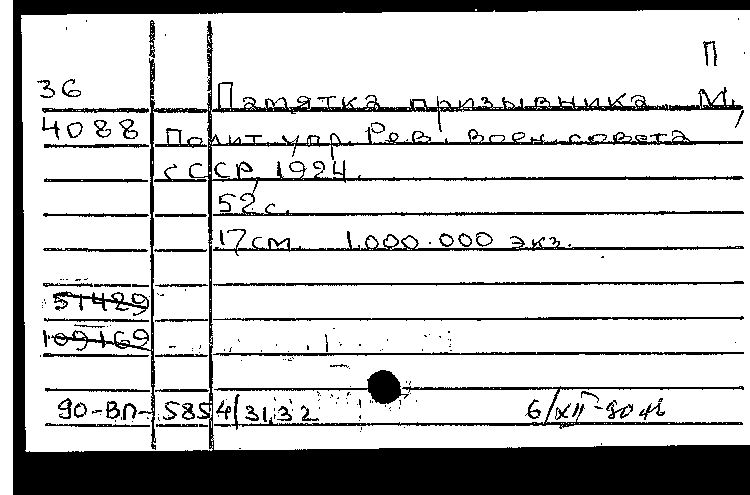 П
36 Памятка призывника М.,
4088 Полит. упр. Рев. воен. совета
СССР, 1924.
52 с.
17 см. 1.000.000 экз.
51429
109169
90-ВП-5854/31,32 6/XII-90